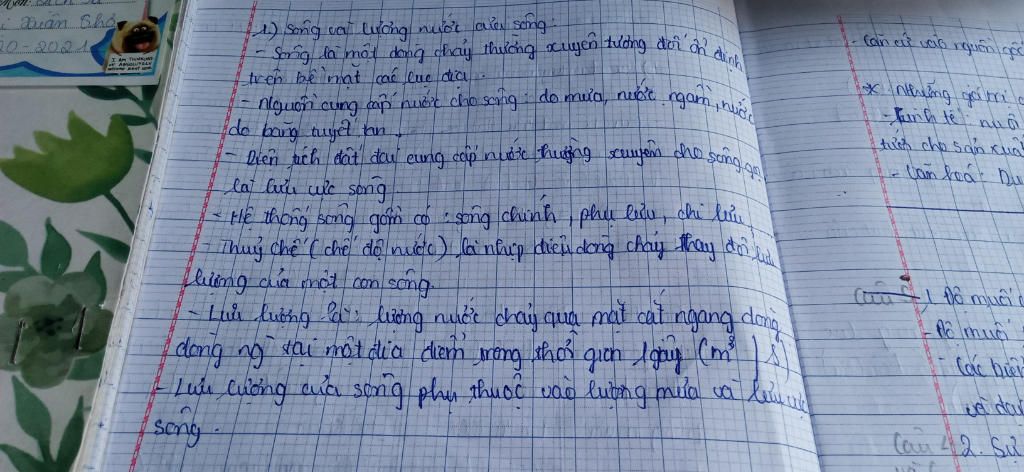 1) Sông và lượng nước của sông:
- Sông là một dòng chảy thường xuyên tương đối ổn định
trên bề mặt các lục địa.
- Nguồn cung cấp nước cho sông: do mưa, nước ngầm, nước
do băng tuyết tan.
- Diện tích đất đai cung cấp nước thường xuyên cho sông gọi
là lưu vực sông
- Hệ thống sông gồm có: sông chính, phụ lưu, chi lưu
- Thuỷ chế (chế độ nước) là nhịp điệu dòng chảy thay đổi lưu
lượng của một con sông.
- Lưu lượng là: lượng nước chảy qua mặt cắt ngang dòng
dòng ng tại một địa điểm trong thời gian 1 giây (m³/s)
- Lưu lượng của sông phụ thuộc vào lượng mưa và lưu vực
sông.
Xuân
10-2021
I AM THINKING
OF ABSOLUTELY
- Căn cứ vào nguồn gốc
* Những giá trị
- Kinh tế: nuôi
cho sản xuất
Câu
1. Độ muối
- Độ muối
- Các biển
và đại
Câu
2. Sự